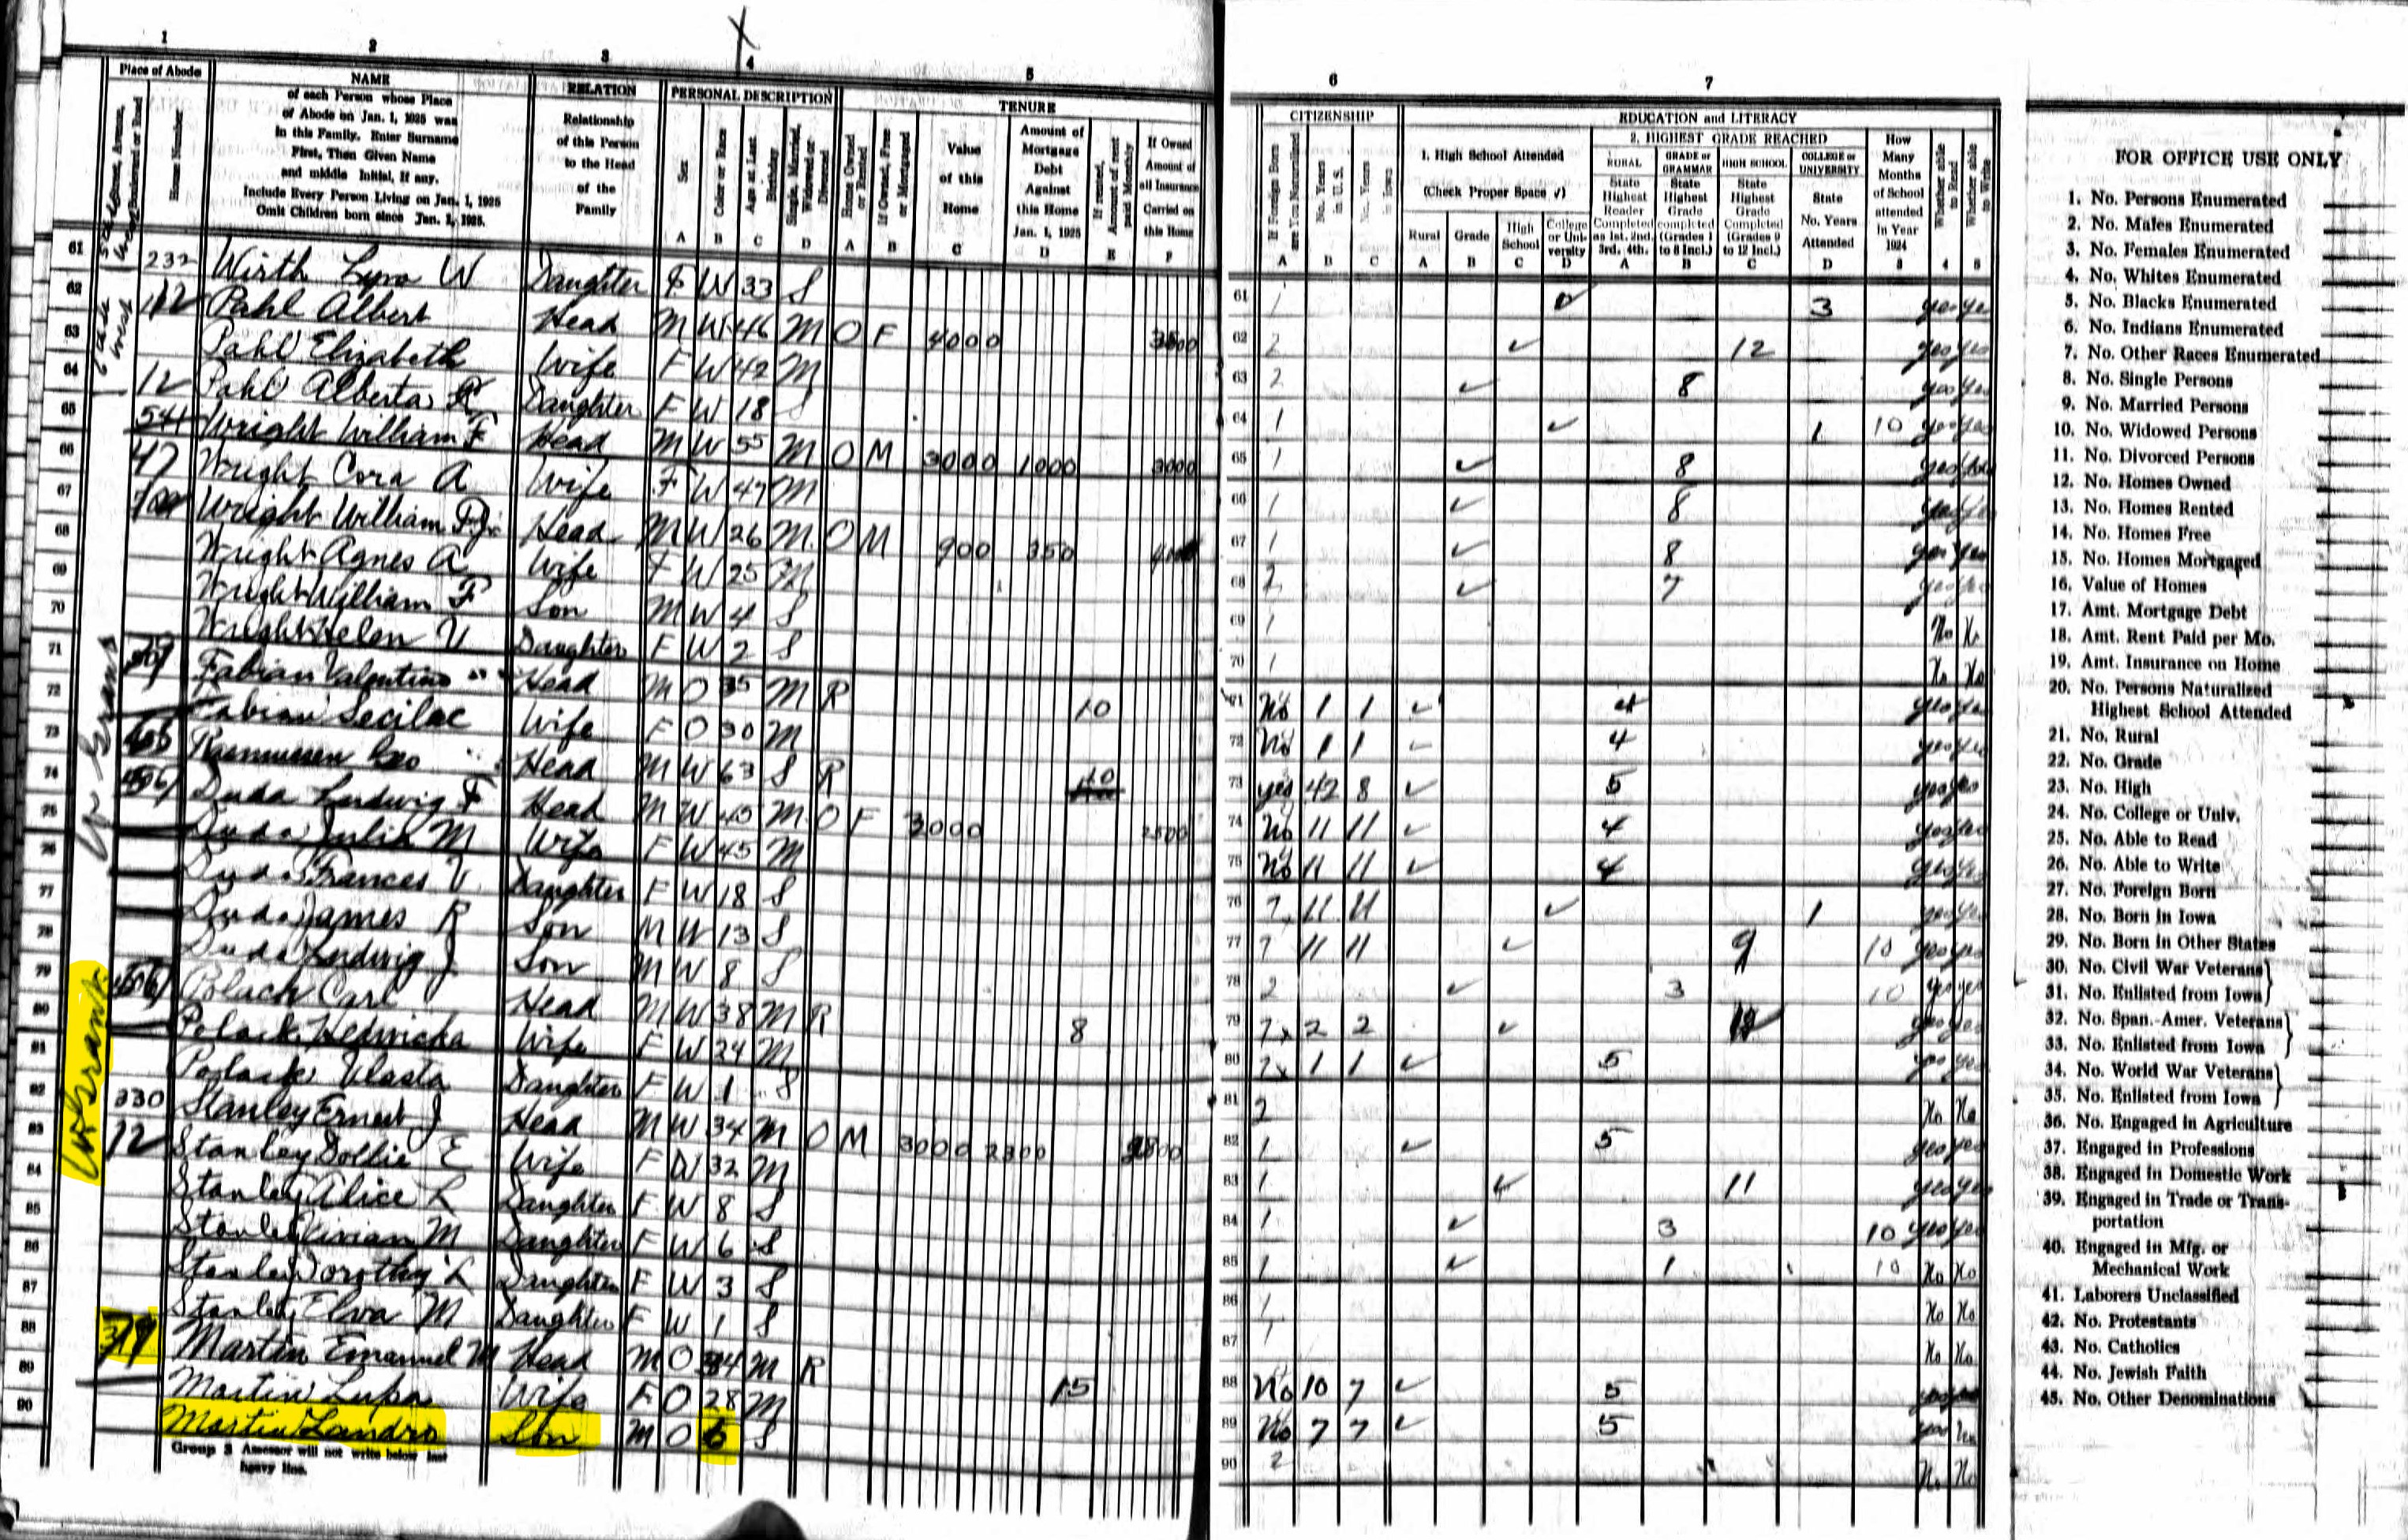 1 2 3 4 5
Place of Abode
Street, Avenue, Boulevard or Road
House Number
NAME
of each Person whose Place
of Abode on Jan. 1, 1925 was
in this Family. Enter Surname
First, Then Given Name
and middle Initial, if any.
Include Every Person Living on Jan. 1, 1925
Omit Children born since Jan. 1, 1925.
RELATION
Relationship
of this Person
to the Head
of the
Family
PERSONAL DESCRIPTION
Sex
Color or Race
Age at Last Birthday
Single, Married, Widowed or Divorced
A B C D
TENURE
Home Owned or Rented
If Owned, Free or Mortgaged
Value of this Home
Amount of Mortgage Debt Against this Home Jan. 1, 1925
If rented, Amount of rent paid Monthly
If Owned Amount of all Insurance Carried on this Home
A B C D E F
61 232 Wirth Lyra W Daughter F W 33 S
62 112 Pahl Albert Head M W 46 M O F 4000 3500
63 Pahl Elizabeth Wife F W 42 M
64 Pahl Alberta R Daughter F W 18 S
65 541 Wright William F Head M W 55 M O M 3000 1000 3000
66 Wright Cora A Wife F W 47 M
67 Wright William F Jr Head M W 26 M O M 900 350
68 Wright Agnes A Wife F W 25 M
69 Wright William F Son M W 4 S
70 Wright Helen V Daughter F W 2 S
71 Fabian Valentino Head M O 35 M R 10
72 Fabian Secilac Wife F O 30 M
73 Rasmussen Geo Head M W 63 S R 10
74 Duda Ludwig F Head M W 45 M O F 3000 2500
75 Duda Julia M Wife F W 45 M
76 Duda Frances V Daughter F W 18 S
77 Duda James R Son M W 13 S
78 Duda Ludwig J Son M W 8 S
79 Polack Carl Head M W 38 M R 8
80 Polack Hedwicka Wife F W 24 M
81 Polack Vlasta Daughter F W 1 S
82 330 Stanley Ernest J Head M W 34 M O M 3000 2300
83 12 Stanley Dollie E Wife F W 32 M
84 Stanley Alice L Daughter F W 8 S
85 Stanley Vivian M Daughter F W 6 S
86 Stanley Dorothy L Daughter F W 3 S
87 Stanley Elva M Daughter F W 1 S
88 319 Martin Emanuel M Head M O 34 M R 15
89 Martin Lupa Wife F O 28 M
90 Martin Landro Son M O 6 S
W Grant
W Grant
Group 3 Assessor will not write below last
heavy line.
6 7
CITIZENSHIP
If Foreign Born are You Naturalized
No. Years in U.S.
No. Years in Iowa
A B C
EDUCATION and LITERACY
1. High School Attended
(Check Proper Space √)
Rural Grade High School College or University
A B C D
2. HIGHEST GRADE REACHED
RURAL
State Highest Reader Completed as 1st, 2nd, 3rd, 4th.
A
GRADE or GRAMMAR
State Highest Grade completed (Grades 1 to 8 Incl.)
B
HIGH SCHOOL
State Highest Grade Completed (Grades 9 to 12 Incl.)
C
COLLEGE or UNIVERSITY
State No. Years Attended
D
How Many Months of School attended in Year 1924
3
Whether able to Read
4
Whether able to Write
5
61 1 ✓ 3 yes yes
62 2 ✓ 12 yes yes
63 2 ✓ 8 yes yes
64 1 ✓ 1 10 yes yes
65 1 ✓ 8 yes yes
66 1 ✓ 8 yes yes
67 1 ✓ 8 yes yes
68 2 ✓ 7 yes yes
69 1 No No
70 1 No No
71 No 1 1 ✓ 4 yes yes
72 No 1 1 ✓ 4 yes yes
73 yes 42 8 ✓ 5 yes yes
74 No 11 11 ✓ 4 yes yes
75 No 11 11 ✓ 4 yes yes
76 11 11 ✓ 1 yes yes
77 11 11 ✓ 9 10 yes yes
78 2 ✓ 3 10 yes yes
79 2 2 ✓ yes yes
80 1 1 ✓ 5 yes yes
81 2 No No
82 1 ✓ 5 yes yes
83 1 ✓ 11 yes yes
84 1 ✓ 3 10 yes yes
85 1 ✓ 1 10 No No
86 1 No No
87 1 No No
88 No 10 7 ✓ 5
89 No 7 7 ✓ 5 yes No
90 2 No No
FOR OFFICE USE ONLY
1. No. Persons Enumerated
2. No. Males Enumerated
3. No. Females Enumerated
4. No. Whites Enumerated
5. No. Blacks Enumerated
6. No. Indians Enumerated
7. No. Other Races Enumerated
8. No. Single Persons
9. No. Married Persons
10. No. Widowed Persons
11. No. Divorced Persons
12. No. Homes Owned
13. No. Homes Rented
14. No. Homes Free
15. No. Homes Mortgaged
16. Value of Homes
17. Amt. Mortgage Debt
18. Amt. Rent Paid per Mo.
19. Amt. Insurance on Home
20. No. Persons Naturalized
Highest School Attended
21. No. Rural
22. No. Grade
23. No. High
24. No. College or Univ.
25. No. Able to Read
26. No. Able to Write
27. No. Foreign Born
28. No. Born in Iowa
29. No. Born in Other States
30. No. Civil War Veterans
31. No. Enlisted from Iowa
32. No. Span.-Amer. Veterans
33. No. Enlisted from Iowa
34. No. World War Veterans
35. No. Enlisted from Iowa
36. No. Engaged in Agriculture
37. Engaged in Professions
38. Engaged in Domestic Work
39. Engaged in Trade or Trans-
portation
40. Engaged in Mfg. or
Mechanical Work
41. Laborers Unclassified
42. No. Protestants
43. No. Catholics
44. No. Jewish Faith
45. No. Other Denominations